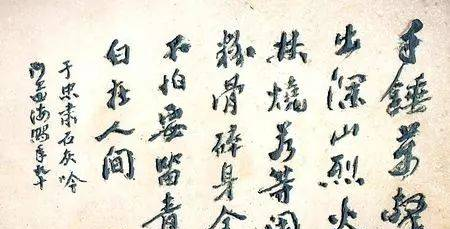 千錘萬擊
出深山烈火
焚燒若等闲
粉骨碎身全
不怕要留青
白在人间
于忠肃石灰吟
沙孟海